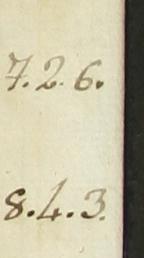 7.2.6.
8.4.3.